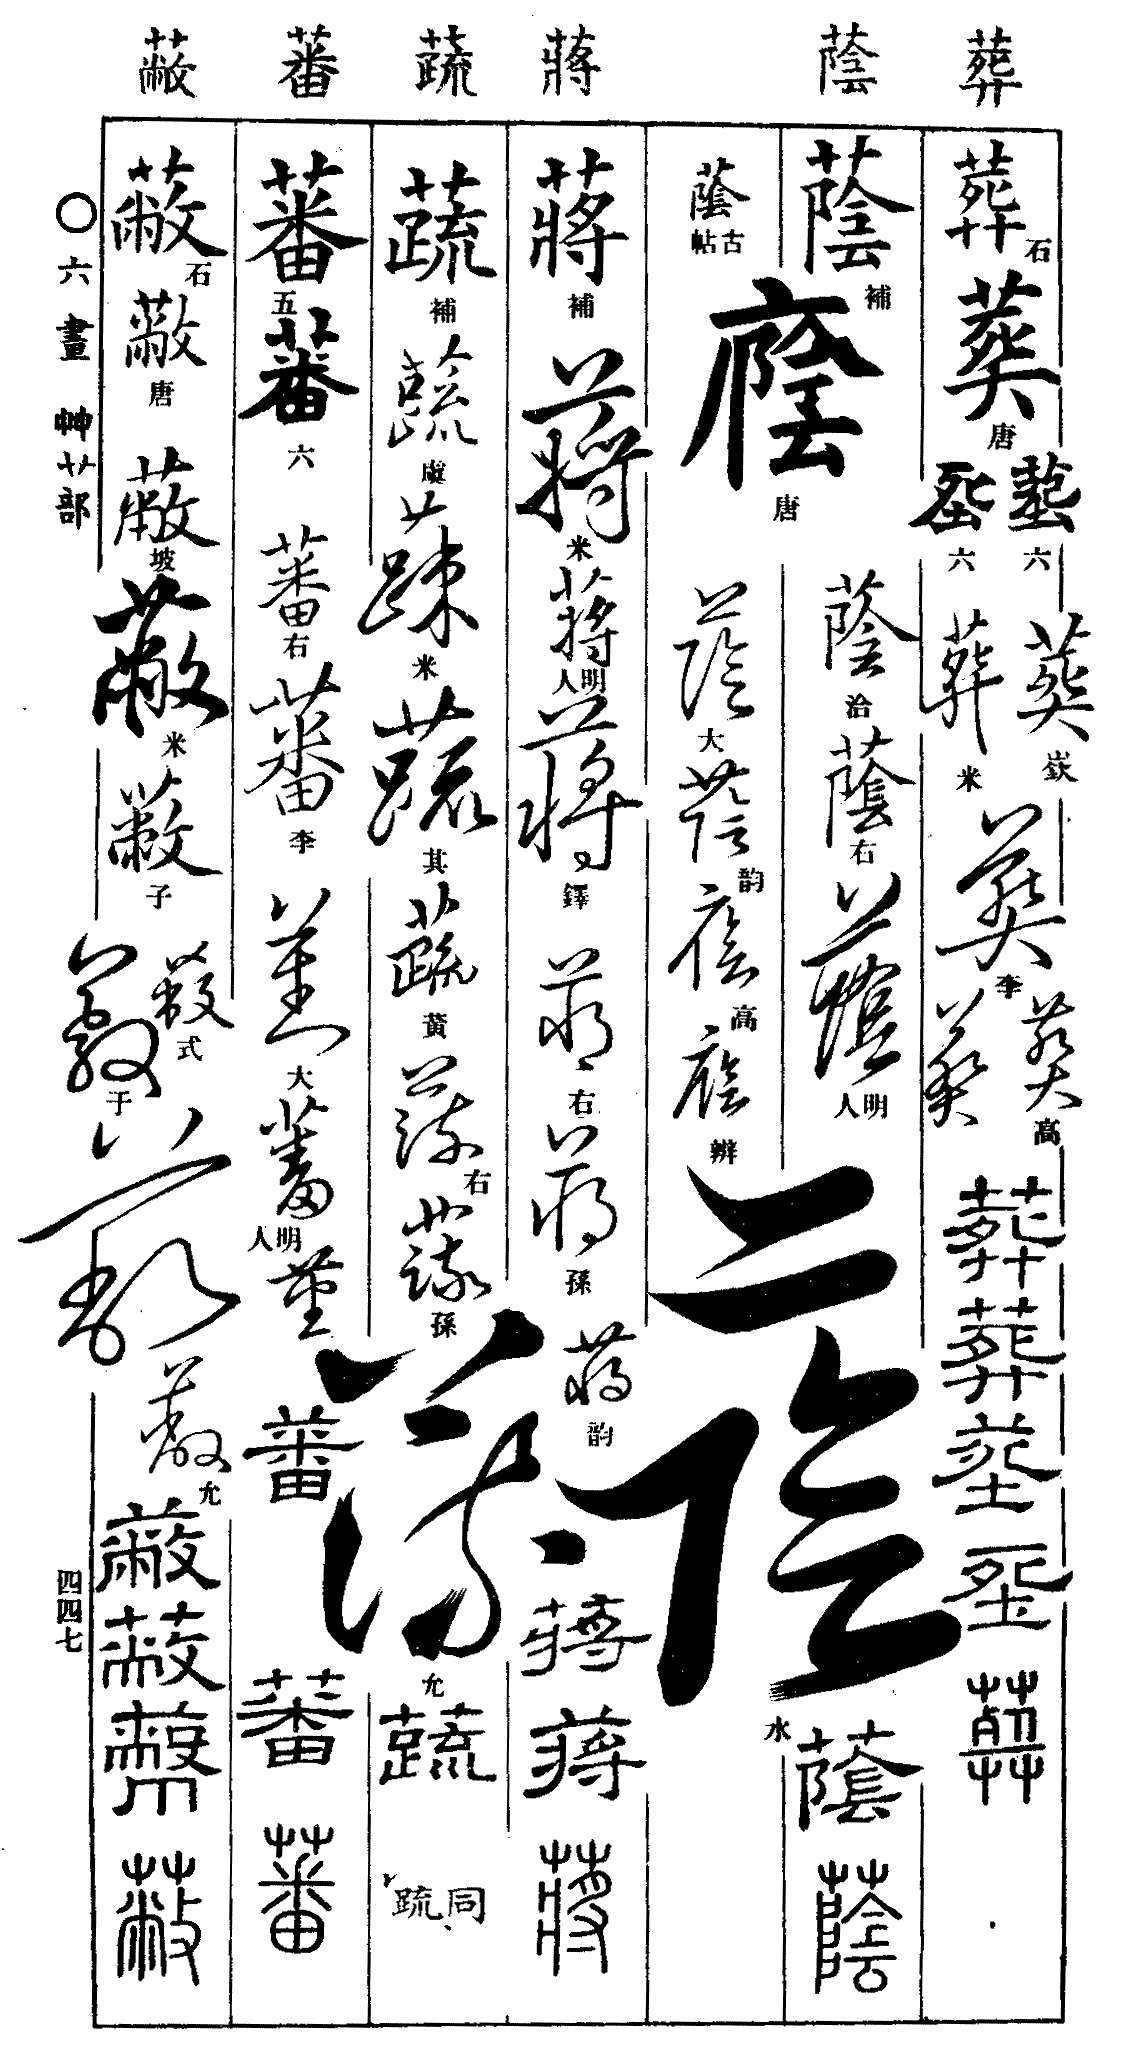 葬 蔭 蔣 蔬 蕃 蔽
葬 石
葬 唐
葬 六
葬 六
葬 嶔
葬 米
葬 李
葬 高
葬
葬
葬
葬
葬
葬
蔭 補
蔭 治
蔭 右
蔭 明人
蔭
蔭
蔭 古帖
蔭 唐
蔭 大
蔭 韵
蔭 高
蔭 辨
蔭 水
蔣 補
蔣 米
蔣 明人
蔣 鐸
蔣 右
蔣 孫
蔣 韵
蔣
蔣
蔣
蔬 補
蔬 虞
蔬 米
蔬 其
蔬 黄
蔬 右
蔬 孫
蔬 允
蔬
同疏
蕃 五
蕃 六
蕃 右
蕃 李
蕃 大
蕃 明人
蕃
蕃
蕃
蕃
蔽 石
蔽 唐
蔽 坡
蔽 米
蔽 子
蔽 式
蔽 于
蔽
蔽 允
蔽
蔽
蔽
蔽
〇六畫 艸艹部
四四七